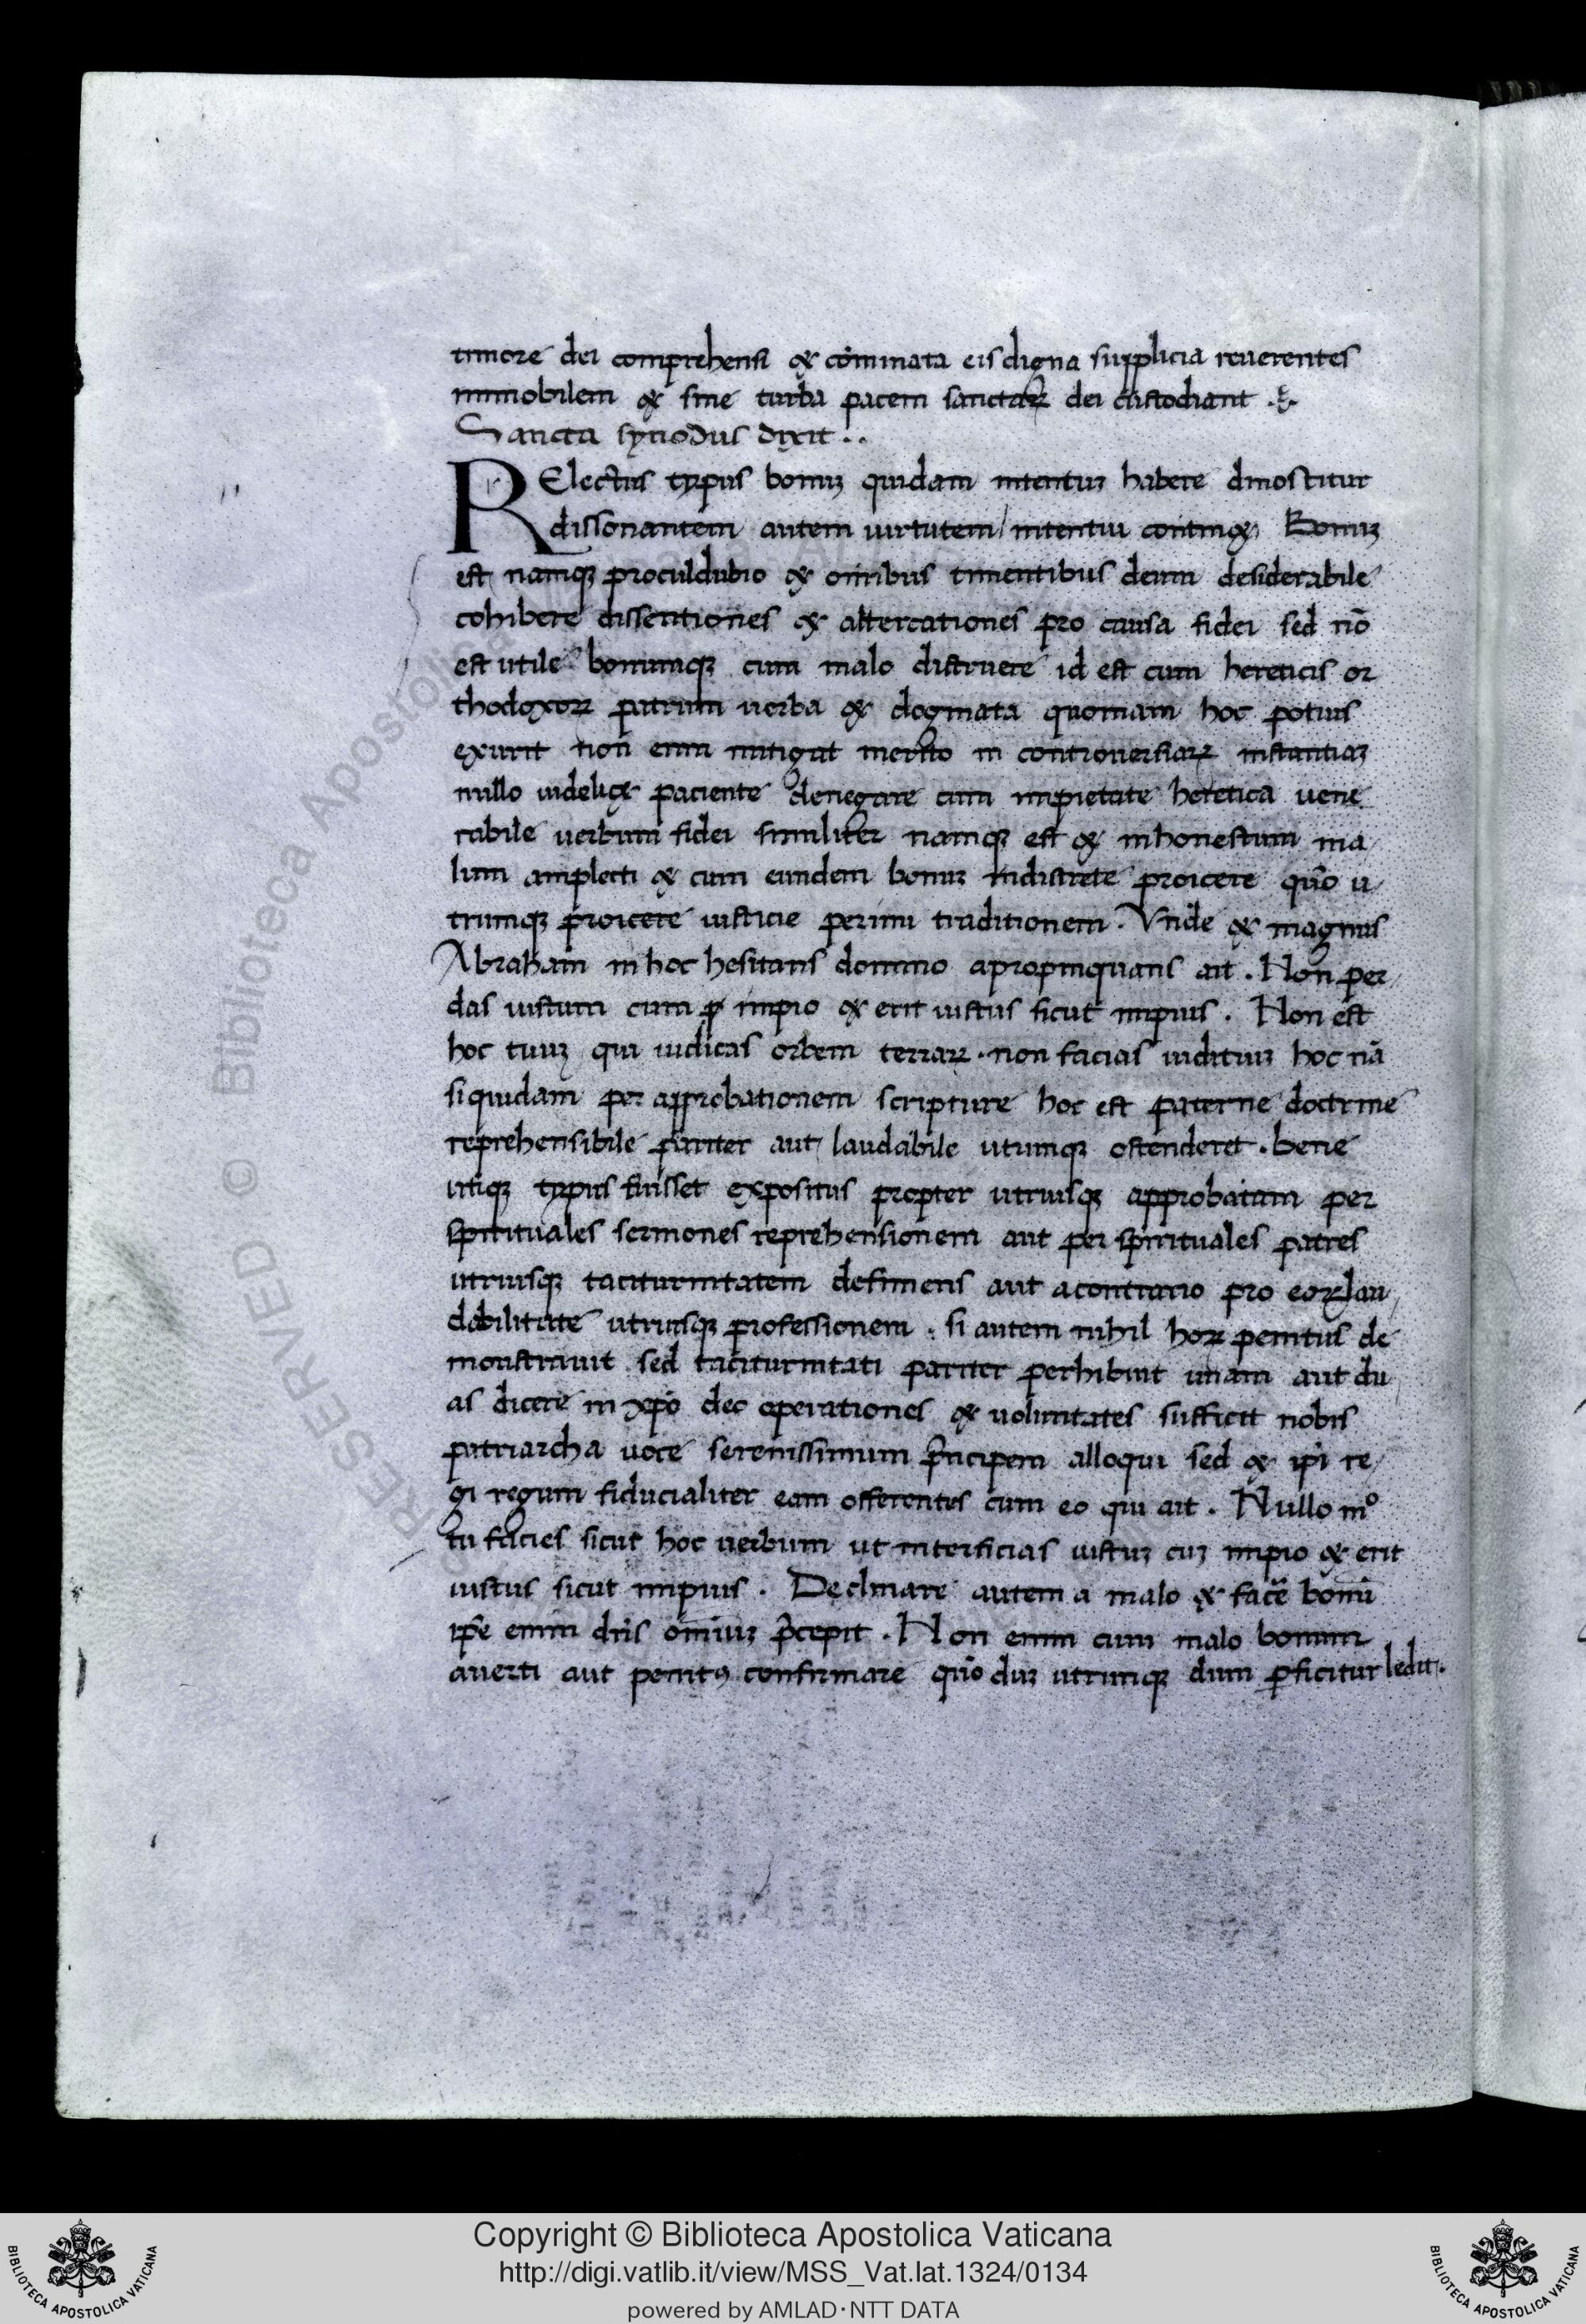 timore dei comprehensi & cōminata eis digna supplicia reuerentes
immobilem & sine turba pacem sanctaꝝ dei custodiant
Sancta synodus dixit..
RElectus typus bonuꝫ quidam intentuꝫ habere dinoscitur
dissonantem autem uirtutem intentui continꝫ Bonuꝫ
est namqꝫ proculdubio & omībus timentibus deum desiderabile
cohibere dissentiones & altercationes pro causa fidei sed nō
est utile bonumqꝫ cum malo distruere id est cum hereticis or
thodoxoꝝ patrum uerba & dogmata quoniam hoc potius
exurit non enim mitigat in controuersiaꝝ instantiaꝫ
nullo uidelic& paciente denegare cum impietate heretica uene
rabile uerbum fidei similiter namqꝫ est & inhonestum ma
lum amplecti & cum eundem bonuꝫ indiscrete proicere quō u
trumqꝫ proicere iusticie perimi traditionem. Vnde & magnus
Abraham in hoc hesitans domino apropinquans ait. Non per
das iustum cum impio & erit iustus sicut impius. Non est
hoc tuuꝫ qui iudicas orbem terraꝝ. non facias iuditiuꝫ hoc nā
siquidam per approbationem scripture hoc est paterne doctrine
reprehensibile pariter aut laudabile utrumqꝫ ostenderet. bene
utiqꝫ typus fuisset expositus propter utriusqꝫ approbatam per
spirituales sermones reprehensionem aut per spirituales patres
utriusqꝫ taciturnitatem definiens aut acontrario pro eoꝝ lau
dabilitate utriusqꝫ professionem. si autem nihil hoꝝ penitus de
monstrauit sed taciturnitati pariter perhibuit unam aut du
as dicere in xp̄o deo operationes & uoluntates sufficit nobis
patriarcha uoce serenissimum p̄ncipem alloqui sed & ip̄i re
gi regum fiducialiter eam offerentes cum eo qui ait. Nullo mᵒ
tu facies sicut hoc uerbum ut interficias iustuꝫ cuꝫ impio & erit
iustus sicut impius. Declinare autem a malo & facē bonū
ip̄e enim dn̄s omīuꝫ p̄cepit. Non enim cum malo bonum
auerti aut penitꝰ confirmare quō duꝫ utrumqꝫ dum ꝑficitur ledit.
RESERVED © Biblioteca Apostolica
Copyright © Biblioteca Apostolica Vaticana
http://digi.vatlib.it/view/MSS_Vat.lat.1324/0134
powered by AMLAD·NTT DATA
BIBLIOTECA APOSTOLICA VATICANA
BIBLIOTECA APOSTOLICA VATICANA